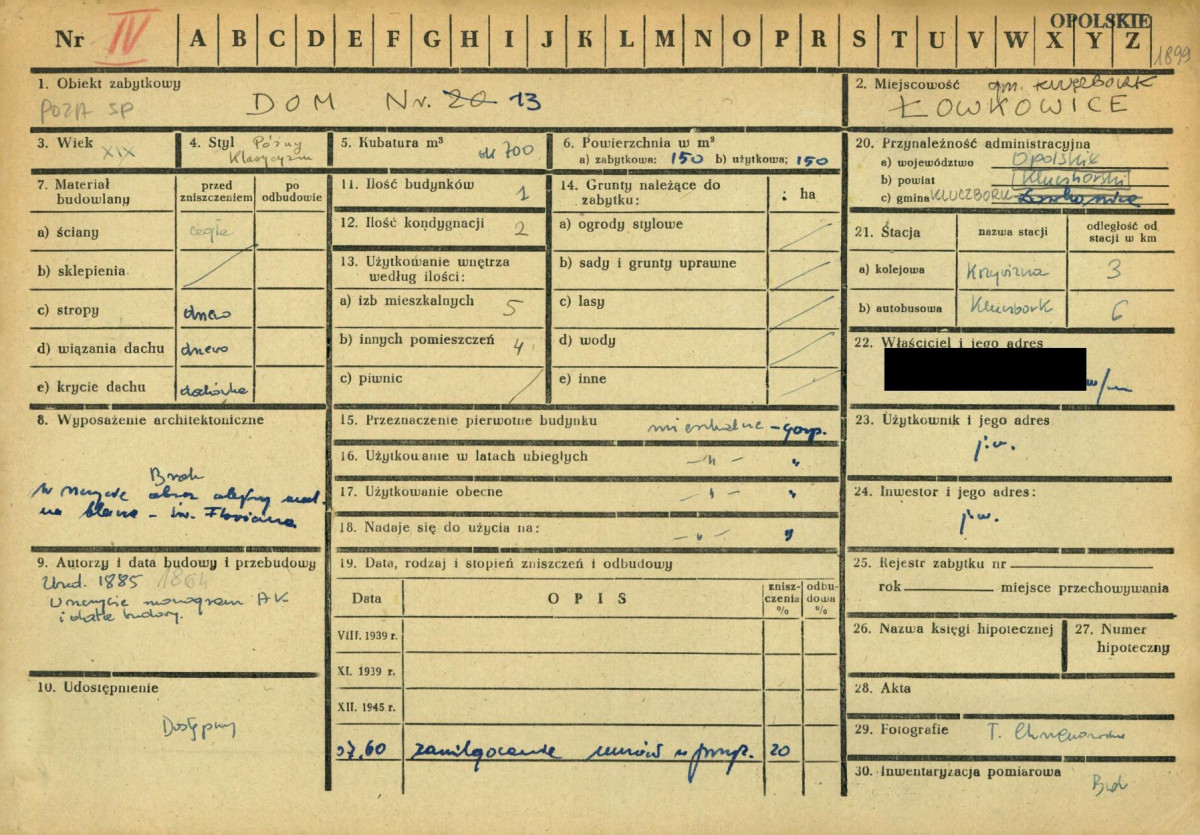 OPOLSKIE
Nr IV A B C D E F G H I J K L M N O P R S T U V W X Y Z
1899
1. Obiekt zabytkowy
POZA SP
DOM Nr. 20 13
2. Miejscowość gm. KLUCZBORK
ŁOWKOWICE
3. Wiek XIX
4. Styl Późny
Klasycyzm
5. Kubatura m³
ok 700
6. Powierzchnia w m²
a) zabytkowa: 150 b) użytkowa: 150
20. Przynależność administracyjna
a) województwo Opolskie
b) powiat Kluczborski
c) gmina KLUCZBORK Łowkowice
7. Materiał budowlany
przed zniszczeniem
po odbudowie
a) ściany cegła
b) sklepienia
c) stropy drewno
d) wiązania dachu drewno
e) krycie dachu dachówka
11. Ilość budynków 1
12. Ilość kondygnacji 2
13. Użytkowanie wnętrza według ilości:
a) izb mieszkalnych 5
b) innych pomieszczeń 4
c) piwnic
14. Grunty należące do zabytku: : ha
a) ogrody stylowe
b) sady i grunty uprawne
c) lasy
d) wody
e) inne
21. Stacja
nazwa stacji
odległość od stacji w km
a) kolejowa Krzywizna 3
b) autobusowa Kluczbork 6
22. Właściciel i jego adres
w/m
8. Wyposażenie architektoniczne
Brak
w szczycie obraz olejny mal.
na blasze - św. Floriana
15. Przeznaczenie pierwotne budynku mieszkalne - gosp.
16. Użytkowanie w latach ubiegłych - " - "
17. Użytkowanie obecne - " - "
18. Nadaje się do użycia na: - " - "
23. Użytkownik i jego adres
j.w.
24. Inwestor i jego adres:
j.w.
9. Autorzy i data budowy i przebudowy
Zbud. 1885 1864
W szczycie monogram AK
i data budowy.
19. Data, rodzaj i stopień zniszczeń i odbudowy
Data
OPIS
znisz-czenia %
odbu-dowa %
VIII. 1939 r.
XI. 1939 r.
XII. 1945 r.
07.60 zawilgocenie murów w przyz. 20
25. Rejestr zabytku nr
rok miejsce przechowywania
26. Nazwa księgi hipotecznej
27. Numer hipoteczny
10. Udostępnienie
Dostępny
28. Akta
29. Fotografie T. Chrzanowski
30. Inwentaryzacja pomiarowa
Brak